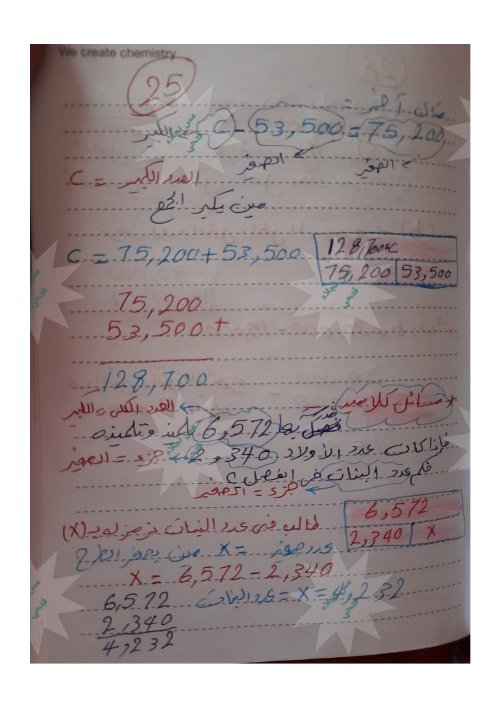 We create chemistry
25
مثال آخر =
C - 53,500 = 75,200
الكبير
الصغير
الصغير
C = العدد الكبير
مين يكبر الجمع
C = 75,200 + 53,500
128,700
75,200 | 53,500
75,200
53,500 +
128,700
* مسائل كلامية:
العدد الكلى = الكبير
بها 6,572 تلميذ وتلميذه
فإذا كانت عدد الأولاد 2,340
جزء = الصغير
فكم عدد البنات فى الفصل ؟
جزء = الصغير
6,572
2,340 | x
طالب منى عدد البنات نرمز له بـ (X)
عدد صغير = x مين يصغر الطرح
X = 6,572 - 2,340
عدد البنات = X = 4,232
6,572
2,340
4,232